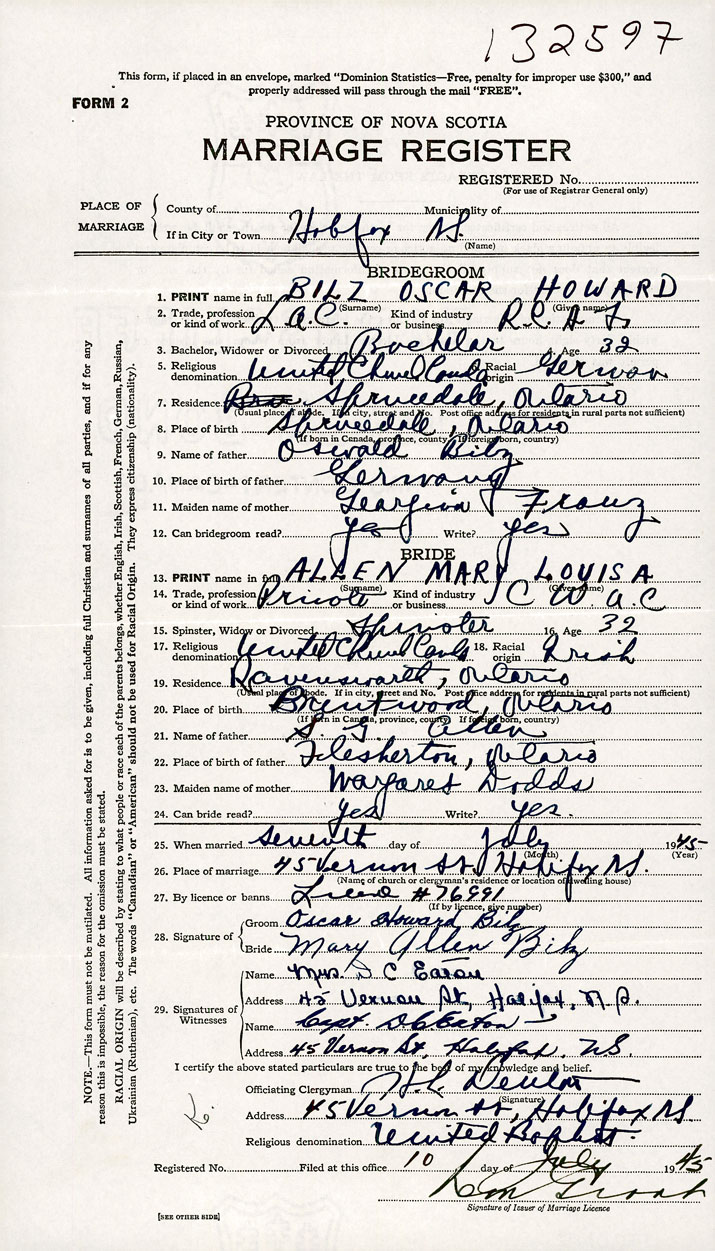 132597
This form, if placed in an envelope, marked "Dominion Statistics—Free, penalty for improper use $300," and
properly addressed will pass through the mail "FREE".
FORM 2
PROVINCE OF NOVA SCOTIA
MARRIAGE REGISTER
REGISTERED No.
(For use of Registrar General only)
PLACE OF MARRIAGE
County of Municipality of
If in City or Town Halifax N.S.
(Name)
BRIDEGROOM
1. PRINT name in full BILZ OSCAR HOWARD
(Surname) (Given name)
2. Trade, profession or kind of work L.A.C. Kind of industry or business R.C.A.F.
3. Bachelor, Widower or Divorced Bachelor Age 32
5. Religious denomination United Church Canada Racial origin German
7. Residence Sprucedale, Ontario
(Usual place of abode. If in city, street and No. Post office address for residents in rural parts not sufficient)
8. Place of birth Sprucedale, Ontario
(If born in Canada, province, county. If foreign born, country)
9. Name of father Oswald Bilz
10. Place of birth of father Germany
11. Maiden name of mother Georgina Franz
12. Can bridegroom read? yes Write? yes
BRIDE
13. PRINT name in full ALLEN MARY LOUISA
(Surname) (Given name)
14. Trade, profession or kind of work Private Kind of industry or business C W A C
15. Spinster, Widow or Divorced Spinster 16. Age 32
17. Religious denomination United Church Canada 18. Racial origin Irish
19. Residence Ravensworth, Ontario
(Usual place of abode. If in city, street and No. Post office address for residents in rural parts not sufficient)
20. Place of birth Brentwood, Ontario
(If born in Canada, province, county. If foreign born, country)
21. Name of father S. G. Allen
22. Place of birth of father Flesherton, Ontario
23. Maiden name of mother Margaret Dodds
24. Can bride read? yes Write? yes.
25. When married seventh day of July 1945
(Month) (Year)
26. Place of marriage 45 Vernon St, Halifax N.S.
(Name of church or clergyman's residence or location of dwelling house)
27. By licence or banns #76991
(If by licence, give number)
28. Signature of
Groom Oscar Howard Bilz
Bride Mary Allen Bilz
29. Signatures of Witnesses
Name Mrs. D C Eaton
Address 45 Vernon St, Halifax, N.S.
Name Capt. D C Eaton
Address 45 Vernon St, Halifax, N.S.
I certify the above stated particulars are true to the best of my knowledge and belief.
Officiating Clergyman
(Signature)
Address 45 Vernon St, Halifax N.S.
Religious denomination United Baptist
Registered No. Filed at this office 10 day of July 1945
Signature of Issuer of Marriage Licence
[SEE OTHER SIDE]
NOTE.—This form must not be mutilated. All information asked for is to be given, including full Christian and surnames of all parties, and if for any
reason this is impossible, the reason for the omission must be stated.
RACIAL ORIGIN will be described by stating to what people or race each of the parents belongs, whether English, Irish, Scottish, French, German, Russian,
Ukrainian (Ruthenian), etc. The words "Canadian" or "American" should not be used for Racial Origin. They express citizenship (nationality).